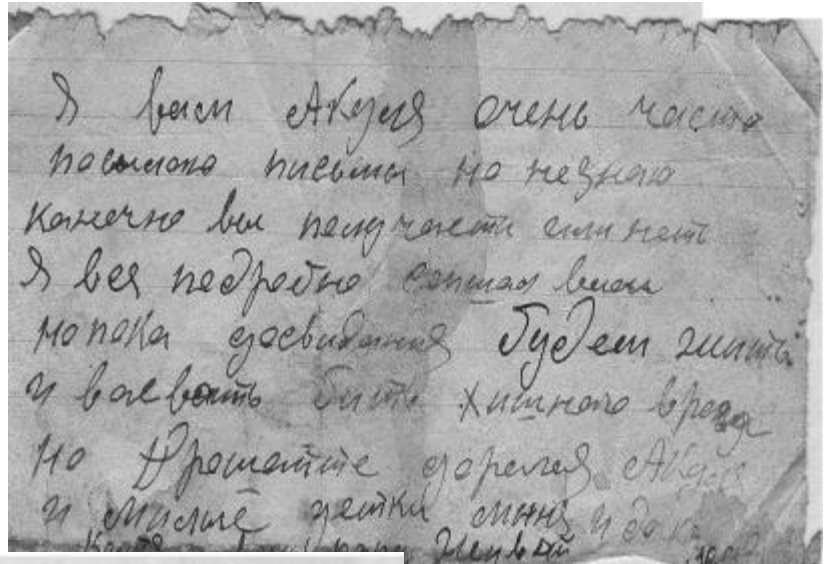 Я вам Акуля очень часто
посылаю письмы но незнаю
канечно вы получаети или нет
Я вся подробно вам
но пока досвидания будем жить
и воевать бить хишного врага
но дорагая Акуля
и милые детки миня и